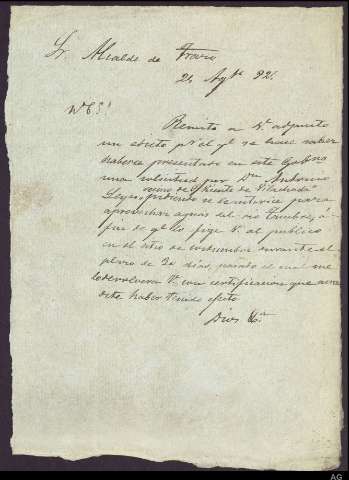 Sr. Alcalde de Trazo
24 Agto 92.
Remito a V. adjunto
un edicto pr. el ql. se hace saber
haberse presentado en este Gobno
una solicitud por Dn Antonio
vecino de Puente de
Lopez, pidiendo se le autorice para
aprovechar aguas del rio Tambre, á
fin de ql. lo fije V. al público
en el sitio de costumbre durante el
plazo de 30 dias, pasado el cual me
lo devolvera V. con certificacion que acre
dite haber tenido efecto
Dios &a.
AG